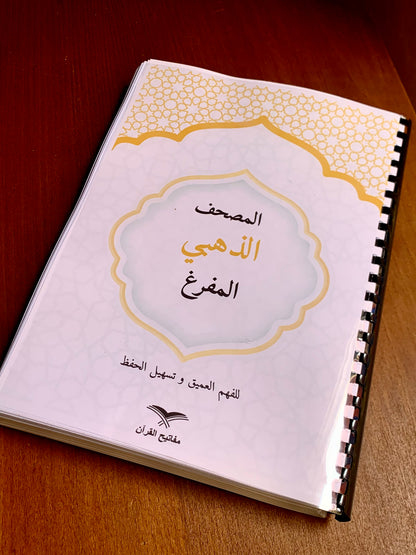 المصحف
الذهبي
المفرغ
للفهم العميق و تسهيل الحفظ
مفاتيح القرآن